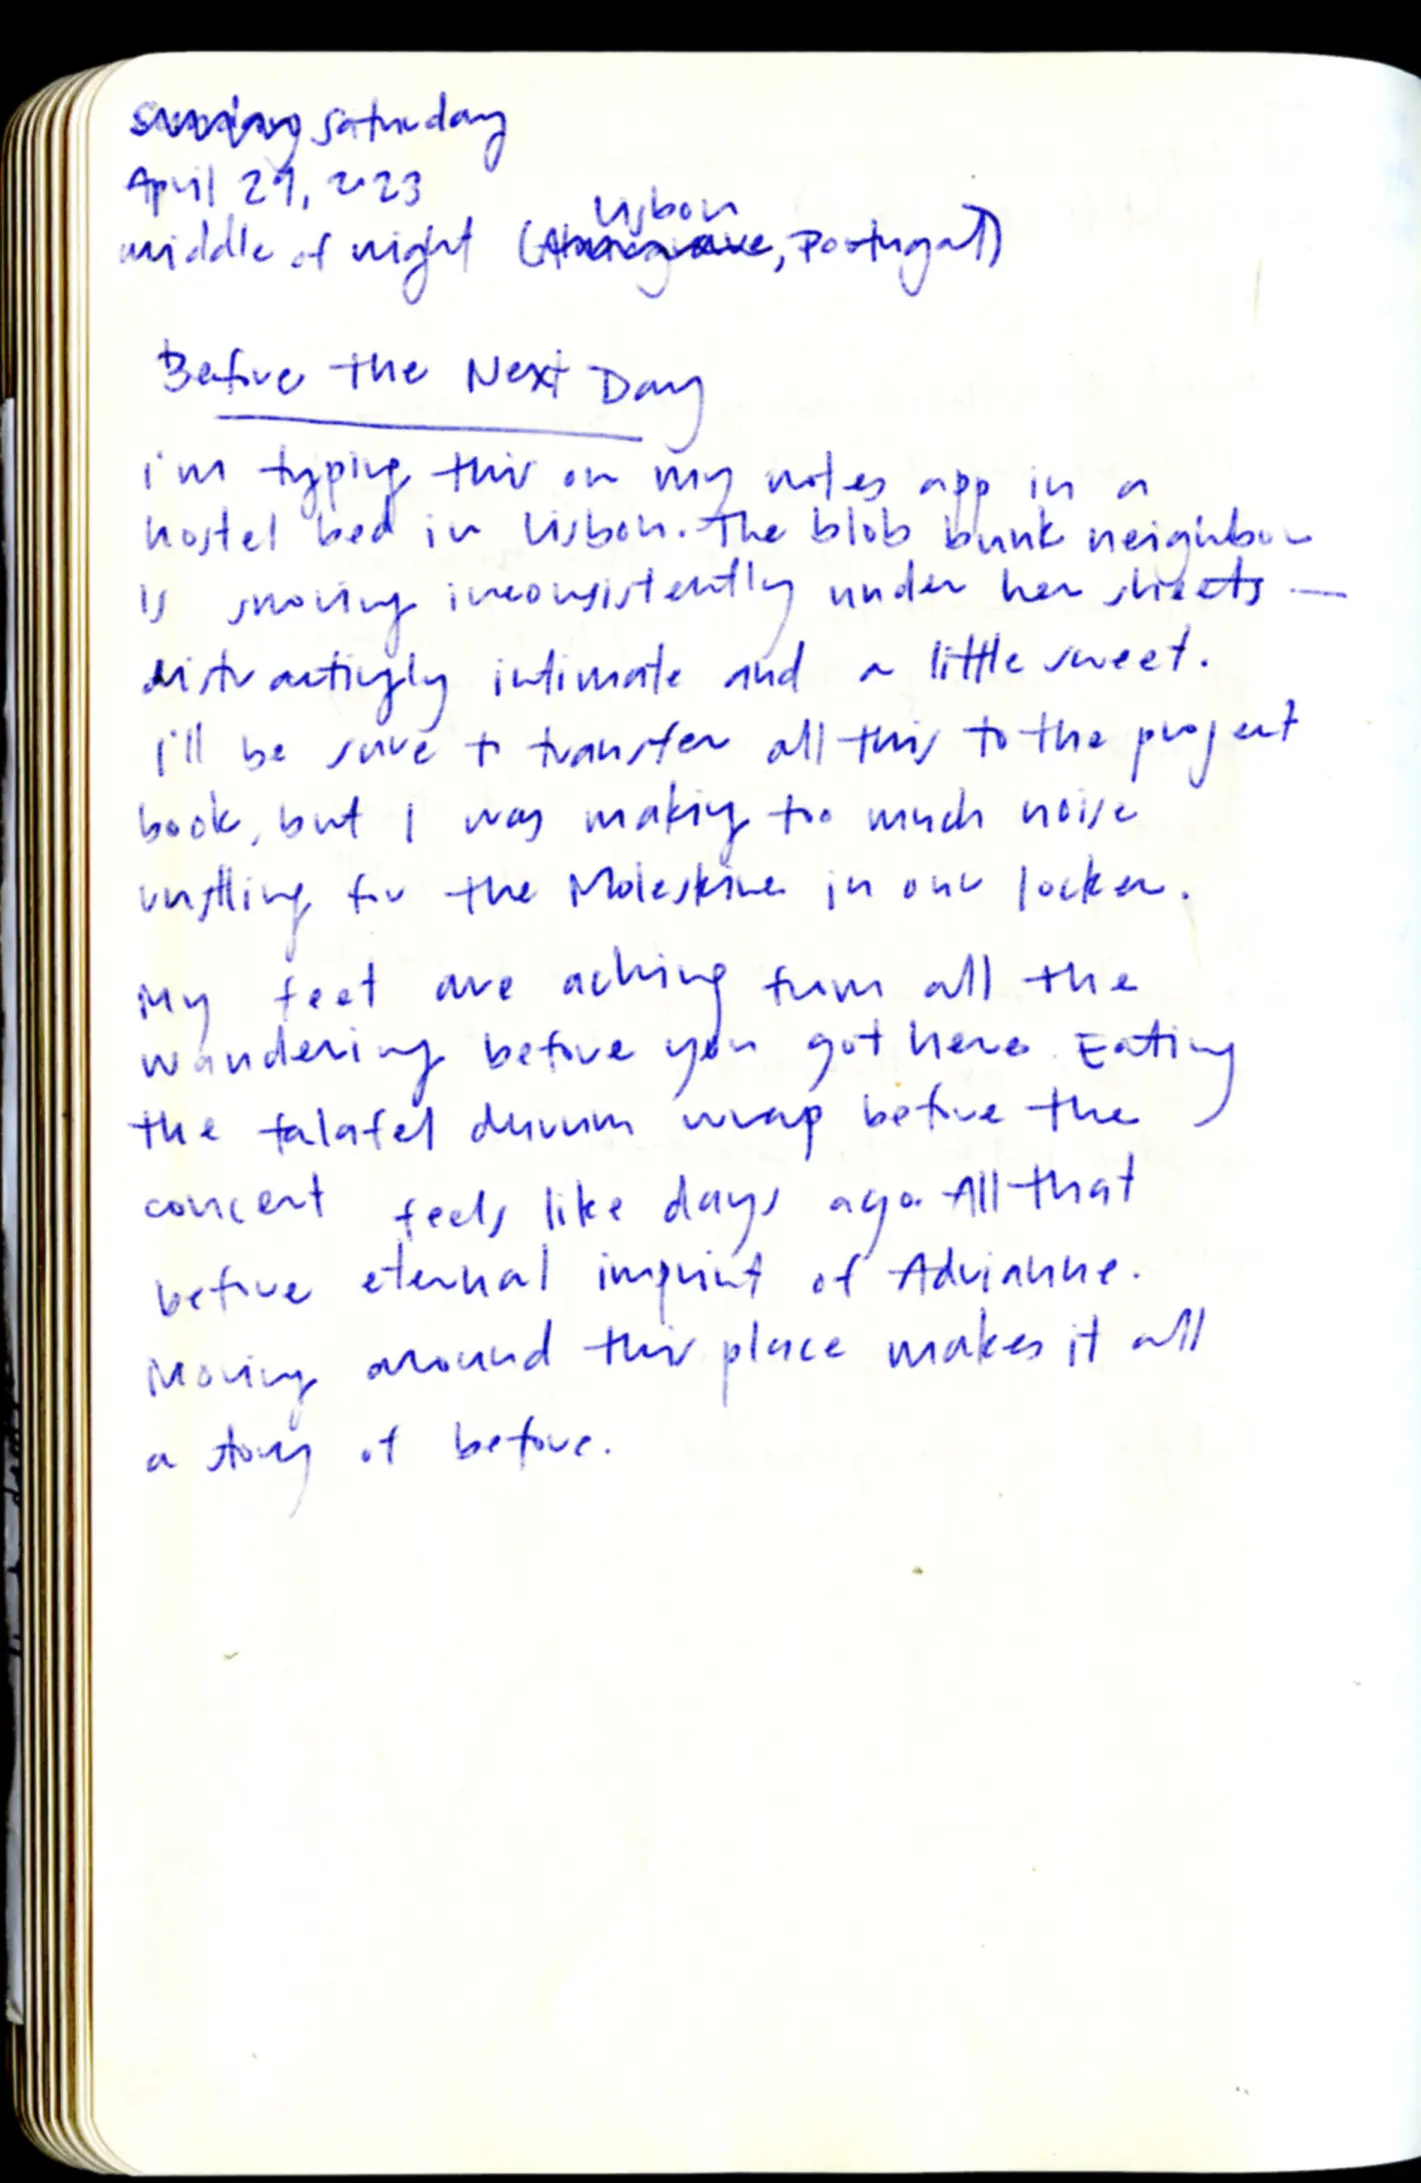 Saturday
April 29, 2023
Lisbon
middle of night (, Portugal)
Before the Next Day
i'm typing this on my notes app in a
hostel bed in Lisbon. The blob bunk neighbour
is snoring inconsistently under her sheets —
distractingly intimate and a little sweet.
I'll be sure to transfer all this to the project
book, but I was making too much noise
rustling for the Moleskine in our locker.
My feet are aching from all the
wandering before you got here. Eating
the falafel durum wrap before the
concert feels like days ago. All that
before eternal imprint of Adrianne.
Moving around this place makes it all
a story of before.